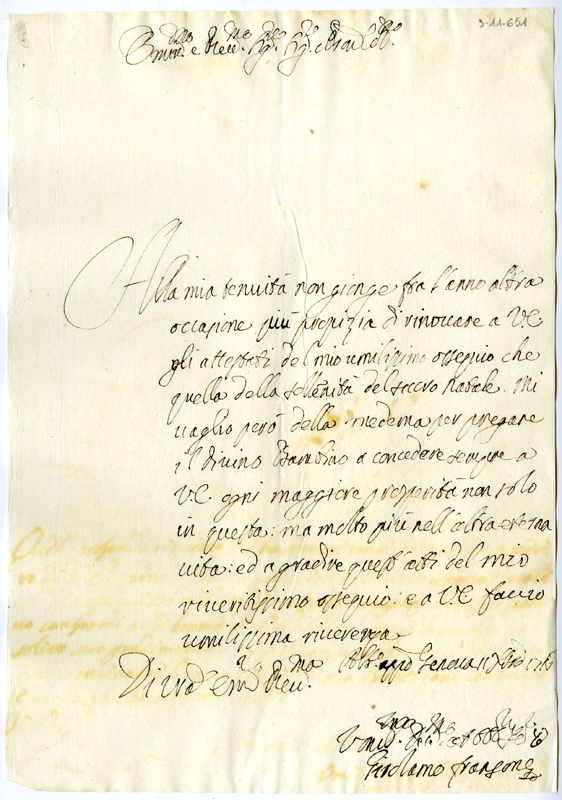 3-11-651
Em.mo e Rev.mo Sig.r Sig.r
Alla mia tenuità non gionge fra l'anno altra
occasione più propizia di rinovare a V.E.
gli attestati del mio umilissimo osseguio che
quella della sollenità del sacro Natale. Mi
vaglio però della medema per pregare
il divino Bambino a concedere sempre a
V.E. ogni maggiore prosperità non solo
in questa: ma molto più nell'altra eterna
vita: ed a gradire quest'atti del mio
riverentissimo osseguio: e a V.E. faccio
umilissima riverenza
Di V.ra Em.a Rev.ma Genova
Girolamo Franzone